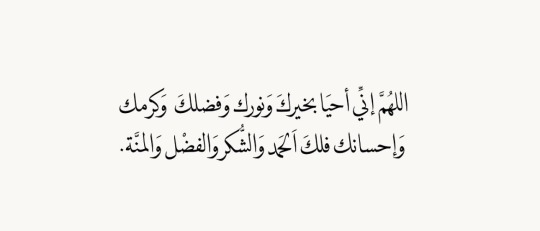 اللهُمَّ إنِّي أحيَا بخيركَ وَنورك وَفضلكَ وَكرمك
وَإحسانك فلكَ اَلحَمد وَالشُّكر وَالفضْل وَالمنَّة.